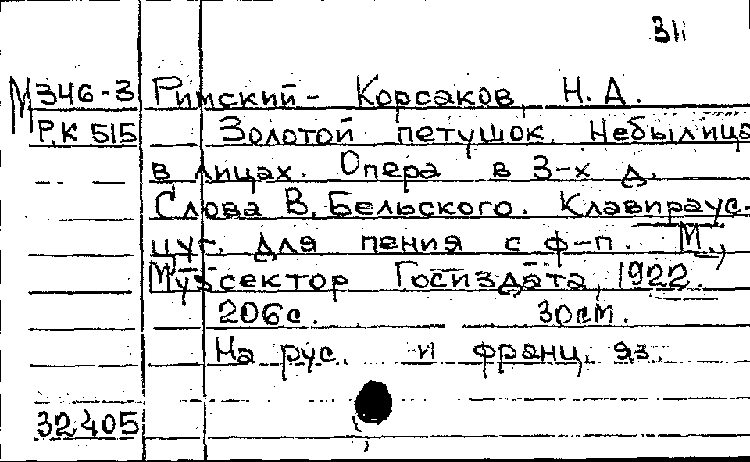 311
М 346-3 Римский-Корсаков, Н.А.
Р.К 515 Золотой петушок. Небылица
в лицах. Опера в 3-х д.
Слова В. Бельского. Клавираус-
цуг. для пения с ф-п. М.,
Музсектор Госиздата, 1922.
206с. 30см.
На рус. и франц. яз.
32405